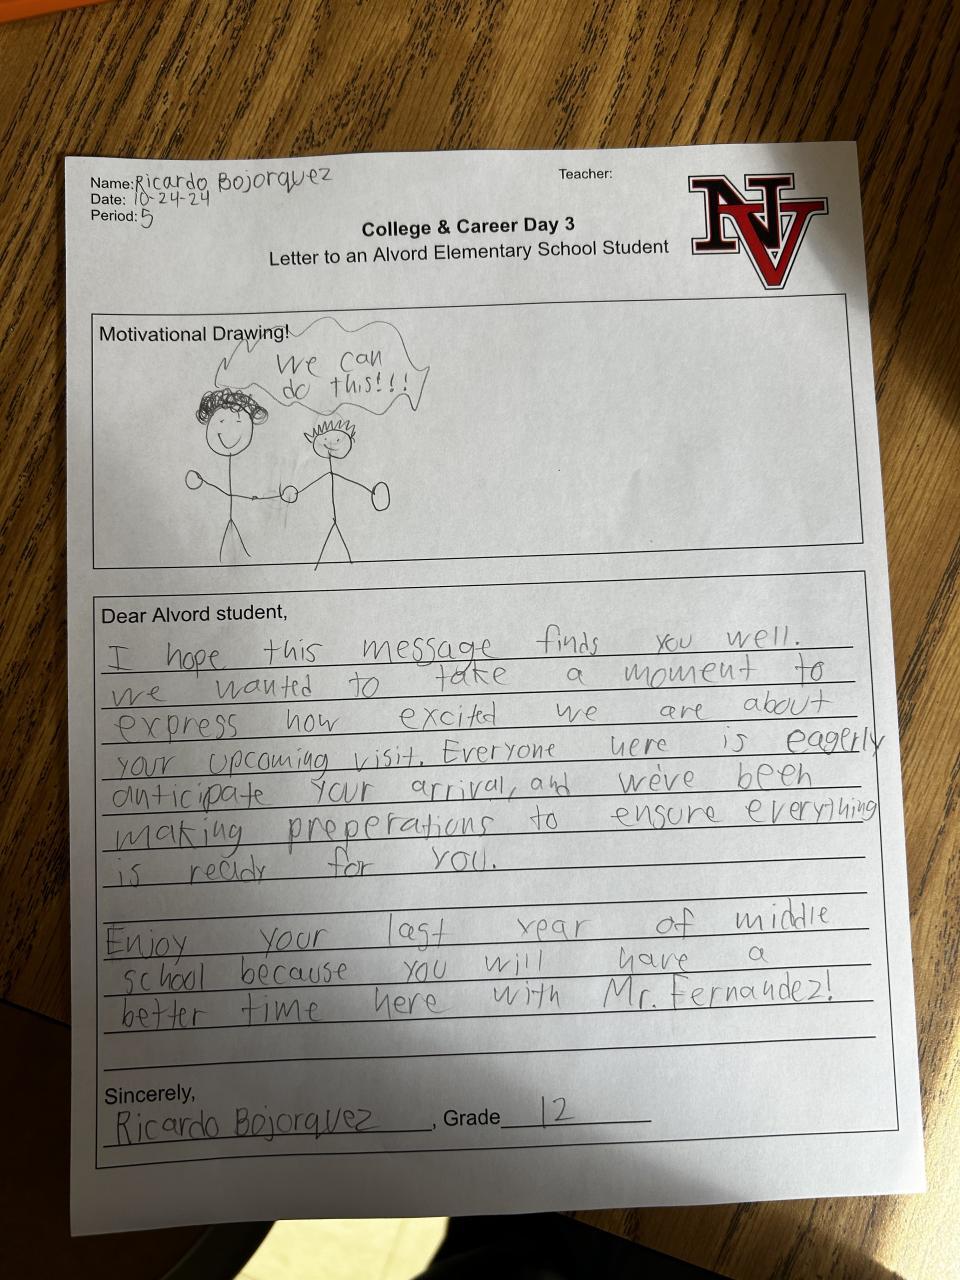 Name: Ricardo Bojorquez
Teacher:
Date: 10-24-24
Period: 5
NV
College & Career Day 3
Letter to an Alvord Elementary School Student
Motivational Drawing!
We can
do this!!!
Dear Alvord student,
I hope this message finds you well.
we wanted to take a moment to
express how excited we are about
your upcoming visit. Everyone here is eagerly
anticipate your arrival, and we've been
making preperations to ensure everything
is ready for you.
Enjoy your last year of middle
school because you will have a
better time here with Mr. Fernandez!
Sincerely,
Ricardo Bojorquez, Grade 12